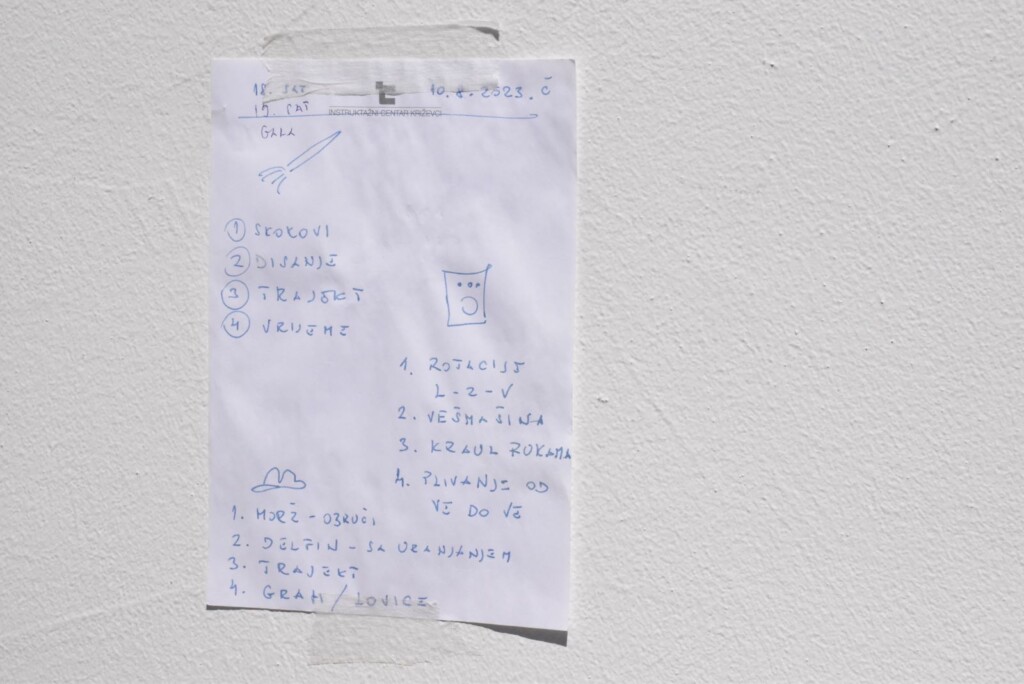 18. SAT
10.8.2023. Č
15. SAT
INSTRUKTAŽNI CENTAR KRIŽEVCI
GALA
1 SKOKOVI
2 DISANJE
3 TRAJEKT
4 VRIJEME
1. ROTACIJE
L-Z-V
2. VEŠMAŠINA
3. KRAUL RUKAMA
4. PLIVANJE OD
VĒ DO VĒ
1. MORŽ - OBRUČI
2. DELFIN - SA URANJANJEM
3. TRAJEKT
4. GRAH / LOVICE